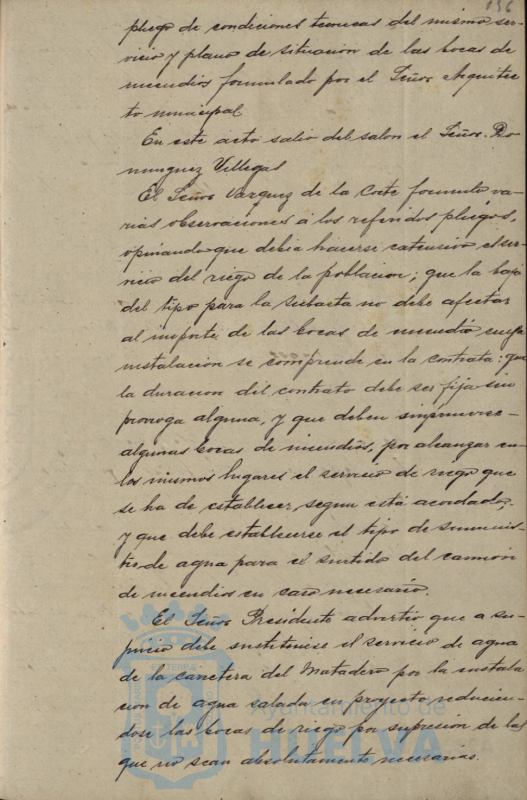 136
pliego de condiciones tecnicas del mismo ser-
vicio y plano de situacion de las bocas de
incendios formulado por el Señor Arquitec
to municipal
En este acto salio del salon el Señor Do-
minguez Villegas
El Señor Vazquez de la Corte formuló va-
rias observaciones á los referidos pliegos,
opinando que debia hacerse extensivo el ser-
vicio del riego de la poblacion; que la baja
del tipo para la subasta no debe afectar
al importe de las bocas de incendio cuya
instalacion se comprende en la contrata: que
la duracion del contrato debe ser fija sin
prorroga alguna, y que deben suprimirse
algunas bocas de incendios, por alcanzar en
los mismos lugares el servicio de riego que
se ha de establecer, segun está acordado;
y que debe establecerse el tipo de suminis-
tro de agua para el surtido del camion
de incendios en caso necesario.
El Señor Presidente advirtió que a su
juicio debe sustituirse el servicio de agua
de la carretera del Matadero por la instala
cion de agua salada en proyecto, reducien-
dose las bocas de riego por supresion de las
que no sean absolutamente necesarias.
Ayuntamiento de
HUELVA